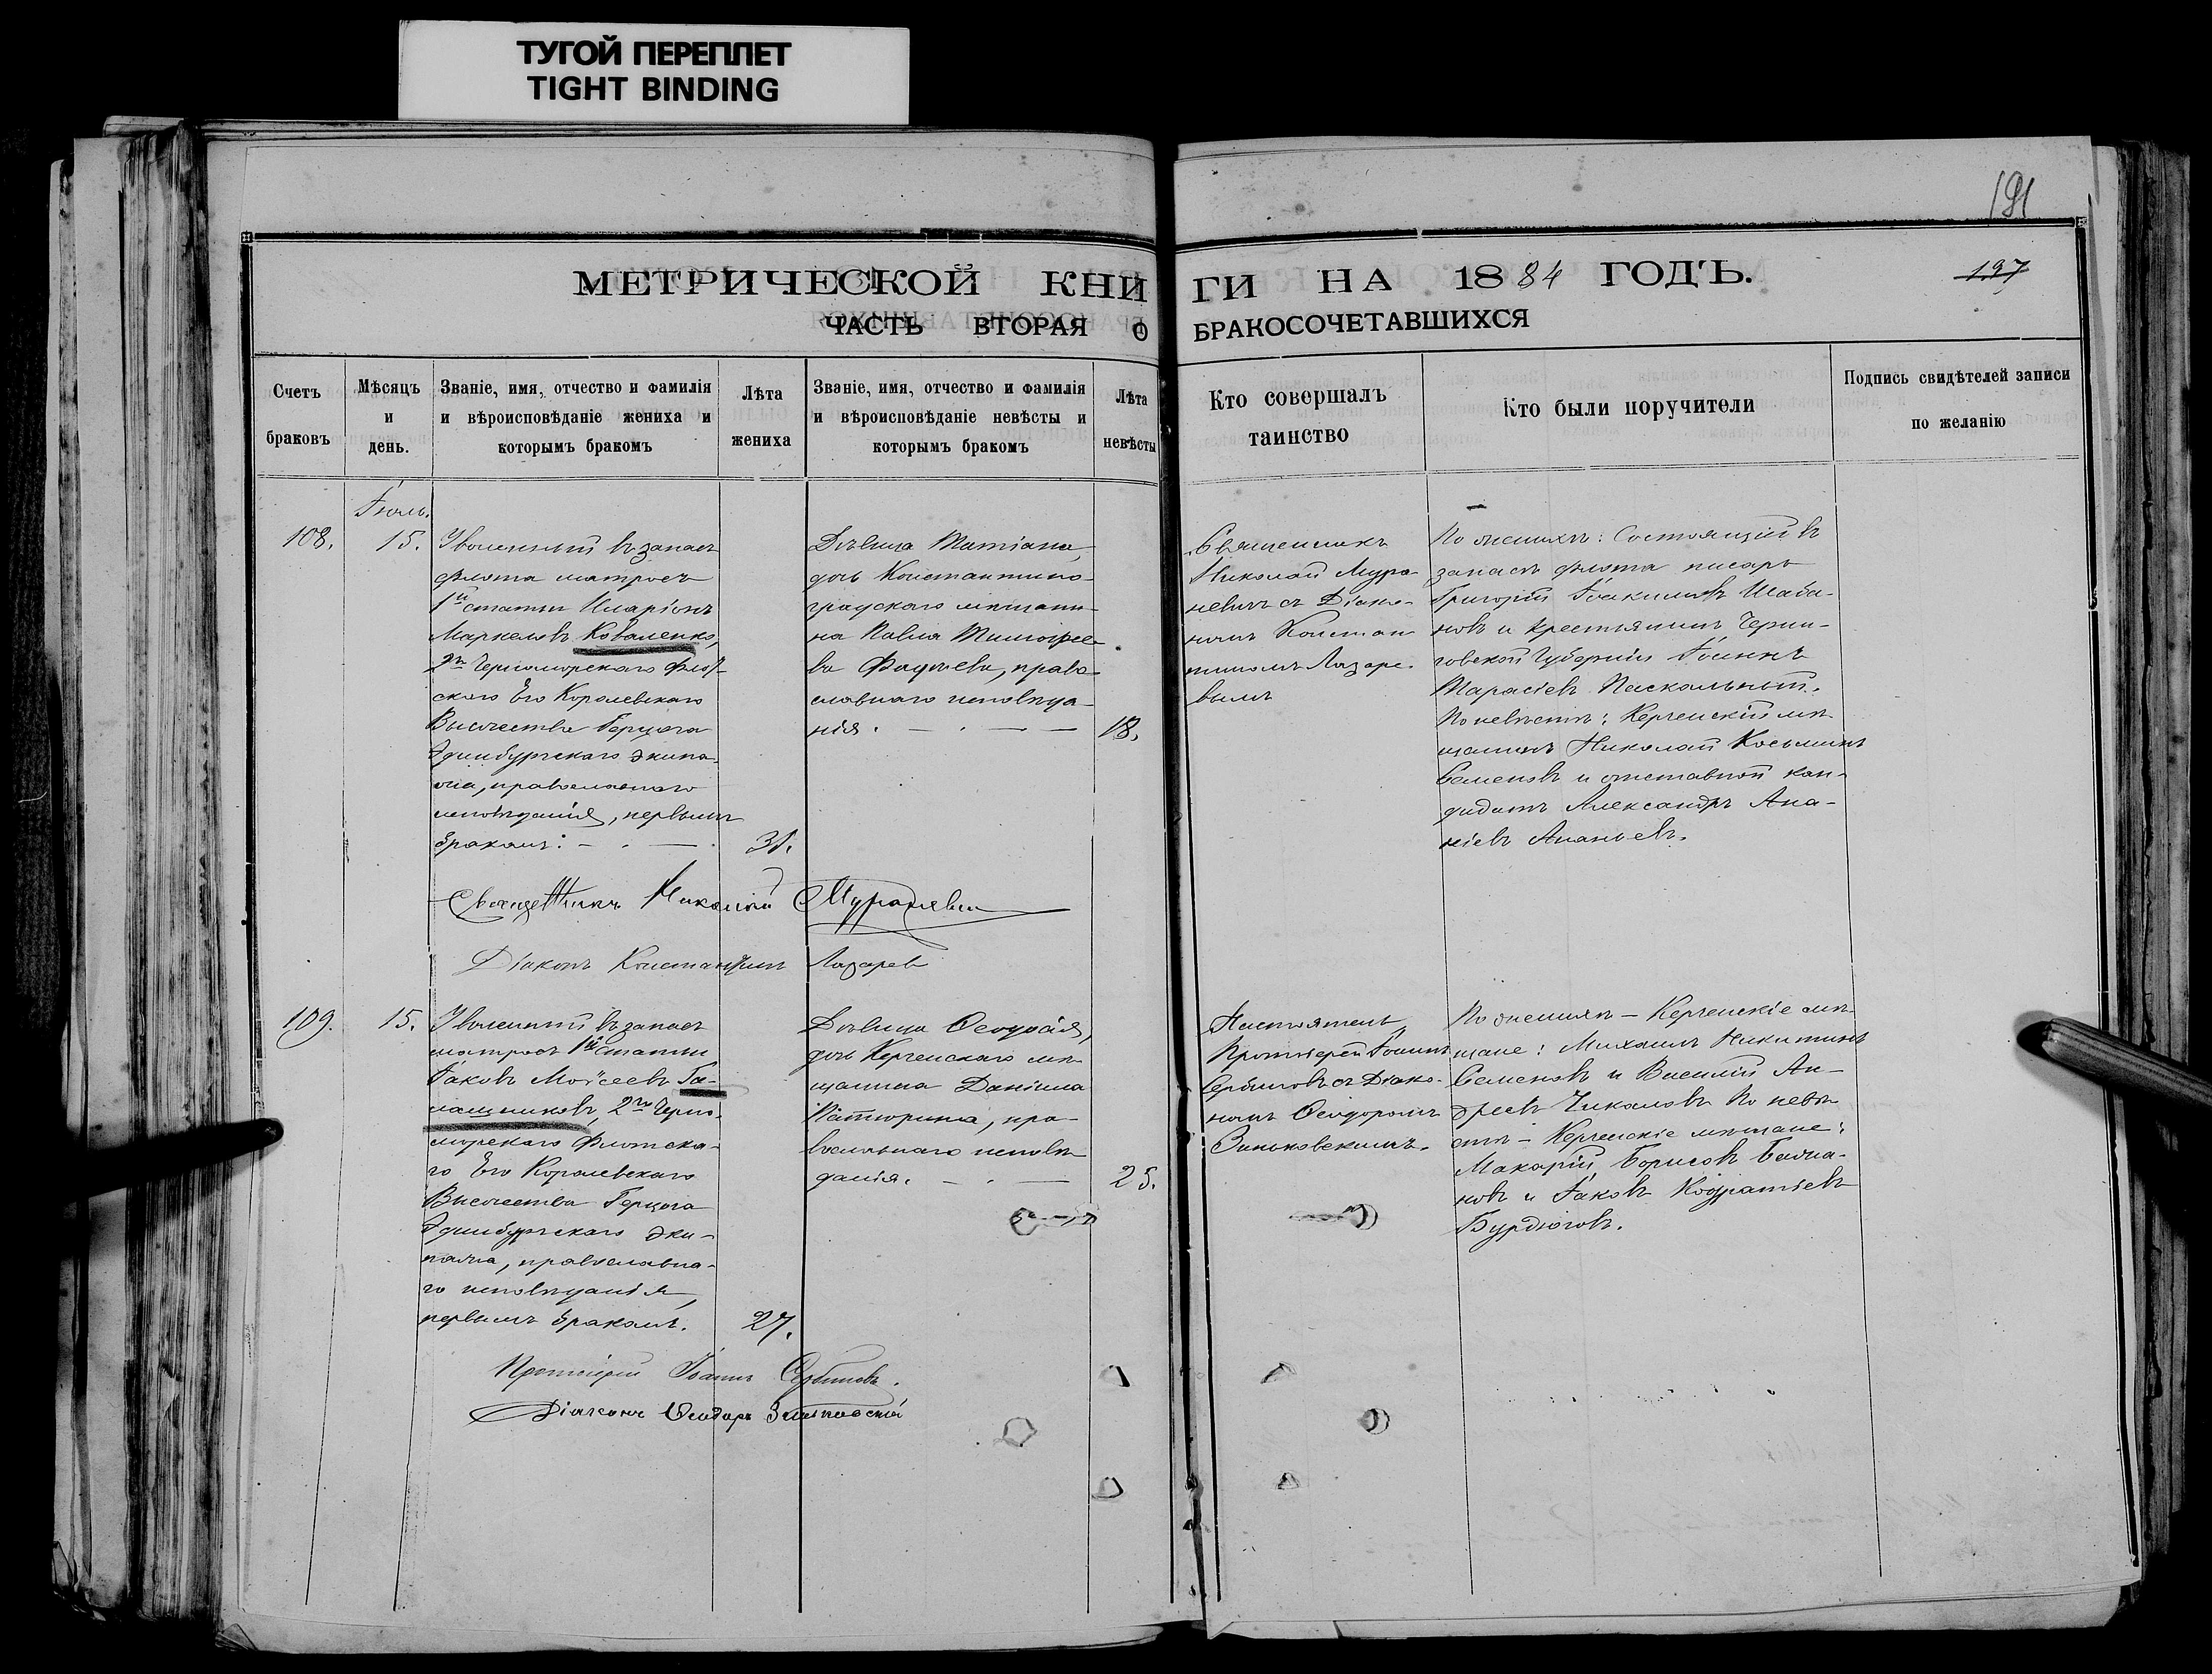 ТУГОЙ ПЕРЕПЛЕТ
TIGHT BINDING
191
МЕТРИЧЕСКОЙ КНИГИ НА 1884 ГОДЪ.
197
ЧАСТЬ ВТОРАЯ О БРАКОСОЧЕТАВШИХСЯ
Счетъ
браковъ
Мѣсяцъ
и
день.
Званіе, имя, отчество и фамилія
и вѣроисповѣданіе жениха и
которымъ бракомъ
Лѣта
жениха
Званіе, имя, отчество и фамилія
и вѣроисповѣданіе невѣсты и
которымъ бракомъ
Лѣта
невѣсты
Кто совершалъ
таинство
Кто были поручители
Подпись свидѣтелей записи
по желанію
Іюль.
108.
15.
Уволенный въ запасъ
флота матросъ
1й статьи Иларіонъ
Маркеловъ Коваленко,
2го Черноморскаго Флот-
скаго Его Королевскаго
Высочества Герцога
Эдинбургскаго экипа-
жа, православнаго
исповѣданія, первымъ
бракомъ.
31.
Дѣвица Татіана,
дочь Константино-
градскаго мѣщани-
на Павла Тимофее-
ва Фадѣева, право-
славнаго исповѣда-
нія.
18.
Священникъ
Николай Мура-
невичъ съ Діако-
номъ Констан-
тиномъ Лазаре-
вымъ
По женихѣ: Состоящій въ
запасѣ флота писарь
Григорій Іоакимовъ Шаба-
новъ и крестьянинъ Черни-
говской Губерніи Іоаннъ
Тарасіевъ Паскальный.
По невѣстѣ: Керченскій мѣ-
щанинъ Николай Косьминъ
Семеновъ и отставной кан-
дидатъ Александръ Ана-
ніевъ Ананьевъ.
Священникъ Николай Мураневичъ
Діаконъ Константинъ Лазарев
109.
15.
Уволенный въ запасъ
матросъ 1й статьи
Іаковъ Моѵсеевъ Га-
лащенковъ, 2го Черно-
морскаго Флотска-
го Его Королевскаго
Высочества Герцога
Эдинбургскаго эки-
пажа, православна-
го исповѣданія,
первымъ бракомъ.
27.
Дѣвица Ѳеодосія,
дочь Керченскаго мѣ-
щанина Даніила
православнаго исповѣ-
данія.
25.
Настоятель
Протоіерей Іоаннъ
Сербиновъ съ Діако-
номъ Ѳеодоромъ
Зиньковскимъ.
По женихѣ – Керченскіе мѣ-
щане: Михаилъ Никитинъ
Семеновъ и Василій Ан-
дреевъ Чикаловъ По невѣ-
стѣ – Керченскіе мѣщане:
Макарій Борисовъ Бажа-
новъ и Іаковъ Кодратіевъ
Бурдюговъ.
Протоіерей Іоаннъ Сербиновъ.
Діаконъ Ѳеодоръ Зиньковскій